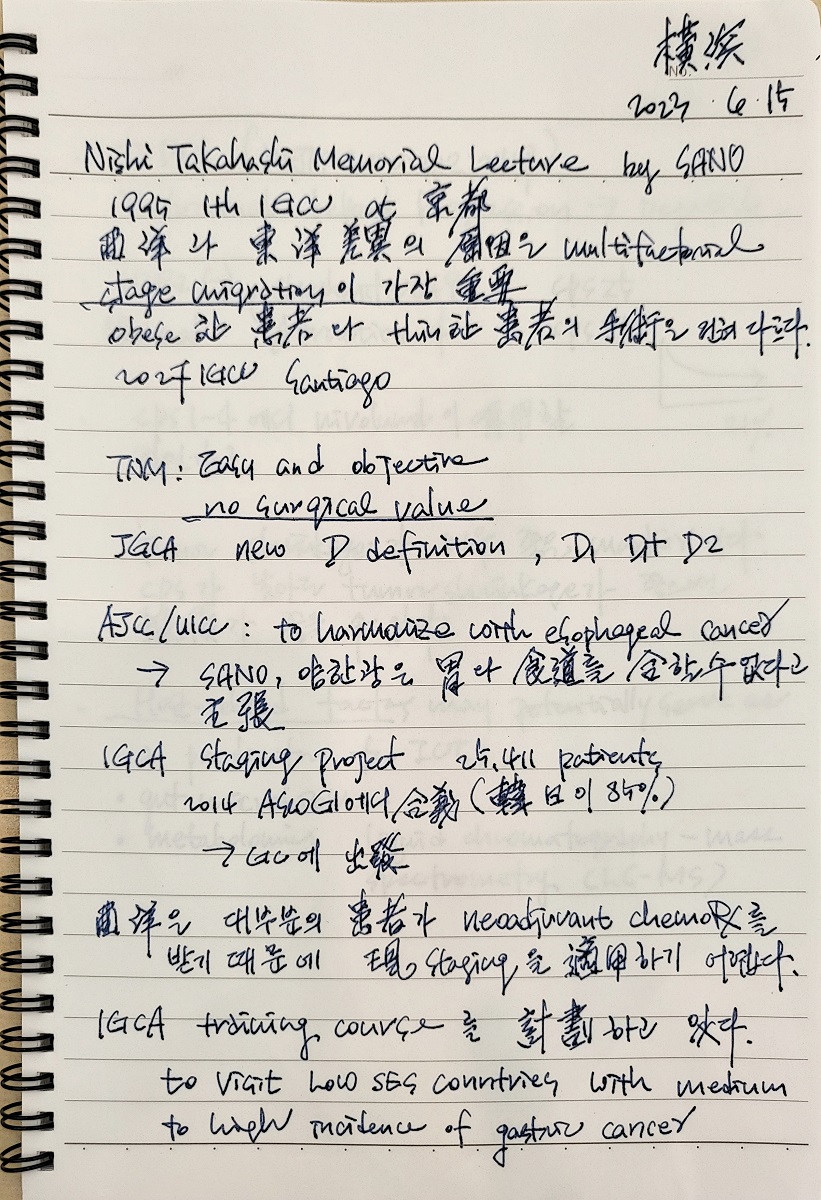 横浜
2023. 6. 15
Nishi Takahashi Memorial Lecture by SANO
1995 1th IGCC at 京都
西洋과 東洋差異의 原因은 multifactorial
stage migration이 가장 重要
obese한 患者와 thin한 患者의 手術은 전혀 다르다.
2027 IGCC Santiago
TNM : Easy and objective
no surgical value
JGCA new D definition, D1 D1+ D2
AJCC/UICC : to harmonize with esophageal cancer
→ SANO, 양한광은 胃와 食道를 合할 수 없다고
主張
IGCA staging project 25,411 patients
2014 ASCO GI에서 合議 (韓日이 85%)
→ GC에 出發
西洋은 대부분의 患者가 neoadjuvant chemoRx를
받기 때문에 現 staging을 適用하기 어렵다.
IGCA training course를 計劃하고 있다.
to visit low SES countries with medium
to high incidence of gastric cancer